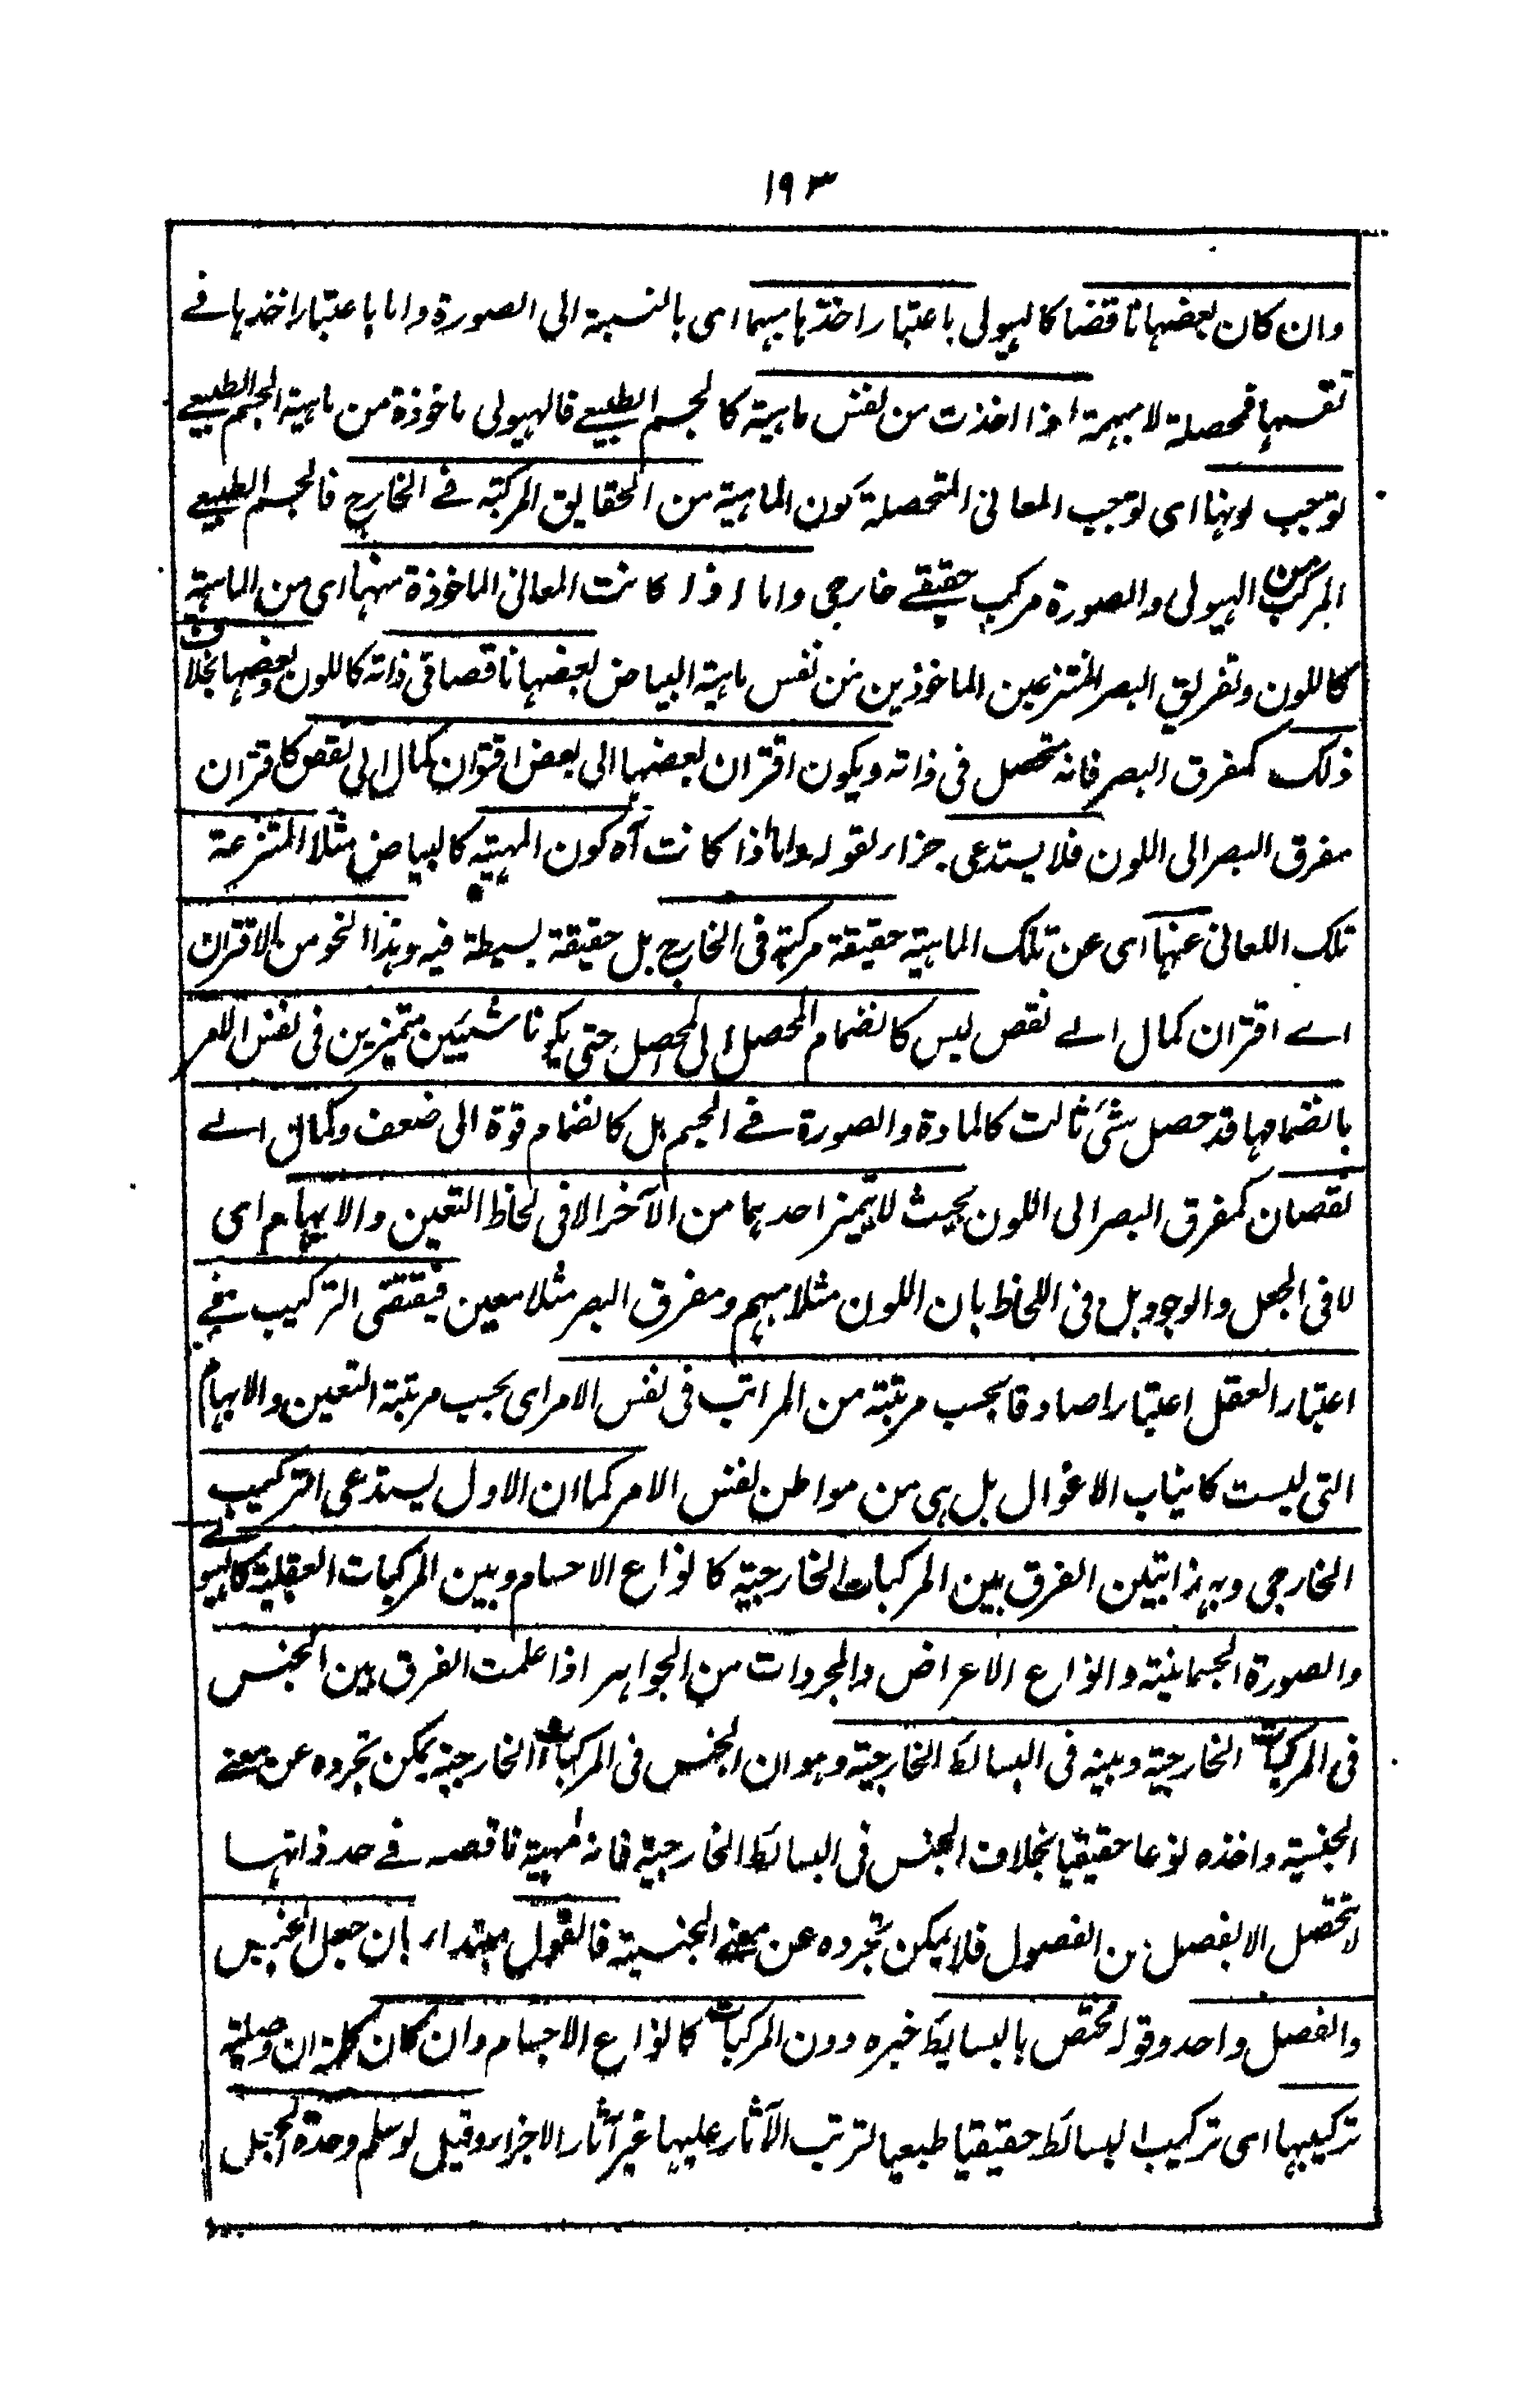 ١٩٣
وان كان بعضها ناقضا كالهيولى باعتبار اخذها مبهما اى بالنسبة الى الصورة واما باعتبار اخذها فے
نفسها فمحصلة لا مبهمة اذا اخذت من نفس ماهية كالجسم الطبيعے فالهيولى ماخوذة من ماهية الجسم الطبيعے
توجب كونها اى توجب المعانى المتحصلة كون الماهية من الحقايق المركبة فے الخارج فالجسم الطبيعے
المركب من الهيولى والصورة مركب حقيقے خارجى واما اذا كانت المعانى الماخوذة منها اى من الماهية
كاللون وتفريق البصر المنتزعين الماخوذين من نفس ماهية البياض بعضها ناقصا فى ذاته كاللون وبعضها بخلاف
ذلك كمفرق البصر فانه متحصل فى ذاته ويكون اقتران بعضها الى بعض اقتران كمال الى نقص كاقتران
مفرق البصر الى اللون فلا يستدعى جزاء لقوله واما اذا كانت آه كون المهية كالبياض مثلا المنتزعة
تلك المعانى عنها اى عن تلك الماهية حقيقة مركبة فى الخارج بل حقيقة بسيطة فيه وهذا النحو من الاقتران
اے اقتران كمال الے نقص ليس كانضمام المحصل الى المحصل حتى يكونا شيئين متميزين فى نفس الامر
بانضمامها قد حصل شئ ثالث كالمادة والصورة فے الجسم بل كانضمام قوة الى ضعف وكمال الے
نقصان كمفرق البصر الى اللون بحيث لا يتميز احدهما من الآخر الا فى لحاظ التعين والابهام اى
لا فى الجعل والوجود بل فى اللحاظ بان اللون مثلا مبهم ومفرق البصر مثلا معين فيقتضى التركيب فے
اعتبار العقل اعتبارا صادقا بحسب مرتبة من المراتب فى نفس الامر اى بحسب مرتبة التعين والابهام
التى ليست كانياب الاغوال بل هى من مواطن نفس الامر كما ان الاول يستدعى التركيب
الخارجى وبهذا تبين الفرق بين المركبات الخارجية كانواع الاجسام وبين المركبات العقلية كالهيولے
والصورة الجسمانية وانواع الاعراض والمجردات من الجواهر اذا علمت الفرق بين الجنس
فى المركبات الخارجية وبينه فى البسائط الخارجية وهو ان الجنس فى المركبات الخارجية يمكن تجرده عن معنے
الجنسية واخذه نوعا حقيقيا بخلاف الجنس فى البسائط الخارجية فانه مهية ناقصه فے حد ذاتها
لا تتحصل الا بفصل من الفصول فلا يمكن تجرده عن معنے الجنسية فالقول مبتداء بان جعل الجنس
والفصل واحد وقوله مختص بالبسايط خبره دون المركبات كانواع الاجسام وان كان كلمة ان وصلية
تركيبها اى تركيب البسائط حقيقيا طبعيا لترتب الآثار عليها غير آثار الاجزاء وقيل لو سلم وحدة الجعل